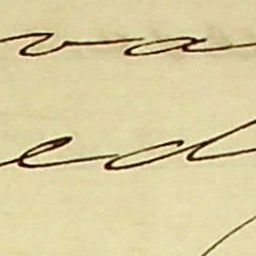 va
ed